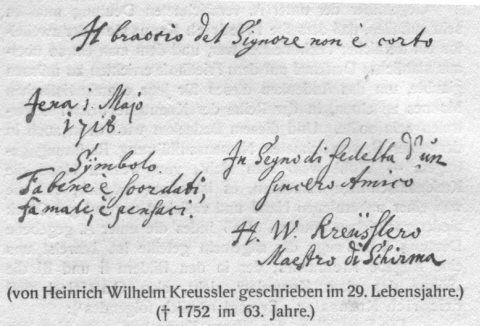 Il braccio del Signore non è corto
Jena i. Majo
1718
Sÿmbolo.
Fa bene è scordati,
fa male, è pensaci.
In Segno di fedelta d'un
sincero Amico
H. W. Kreüsslero
Maestro di Schirma
(von Heinrich Wilhelm Kreussler geschrieben im 29. Lebensjahre.)
(† 1752 im 63. Jahre.)